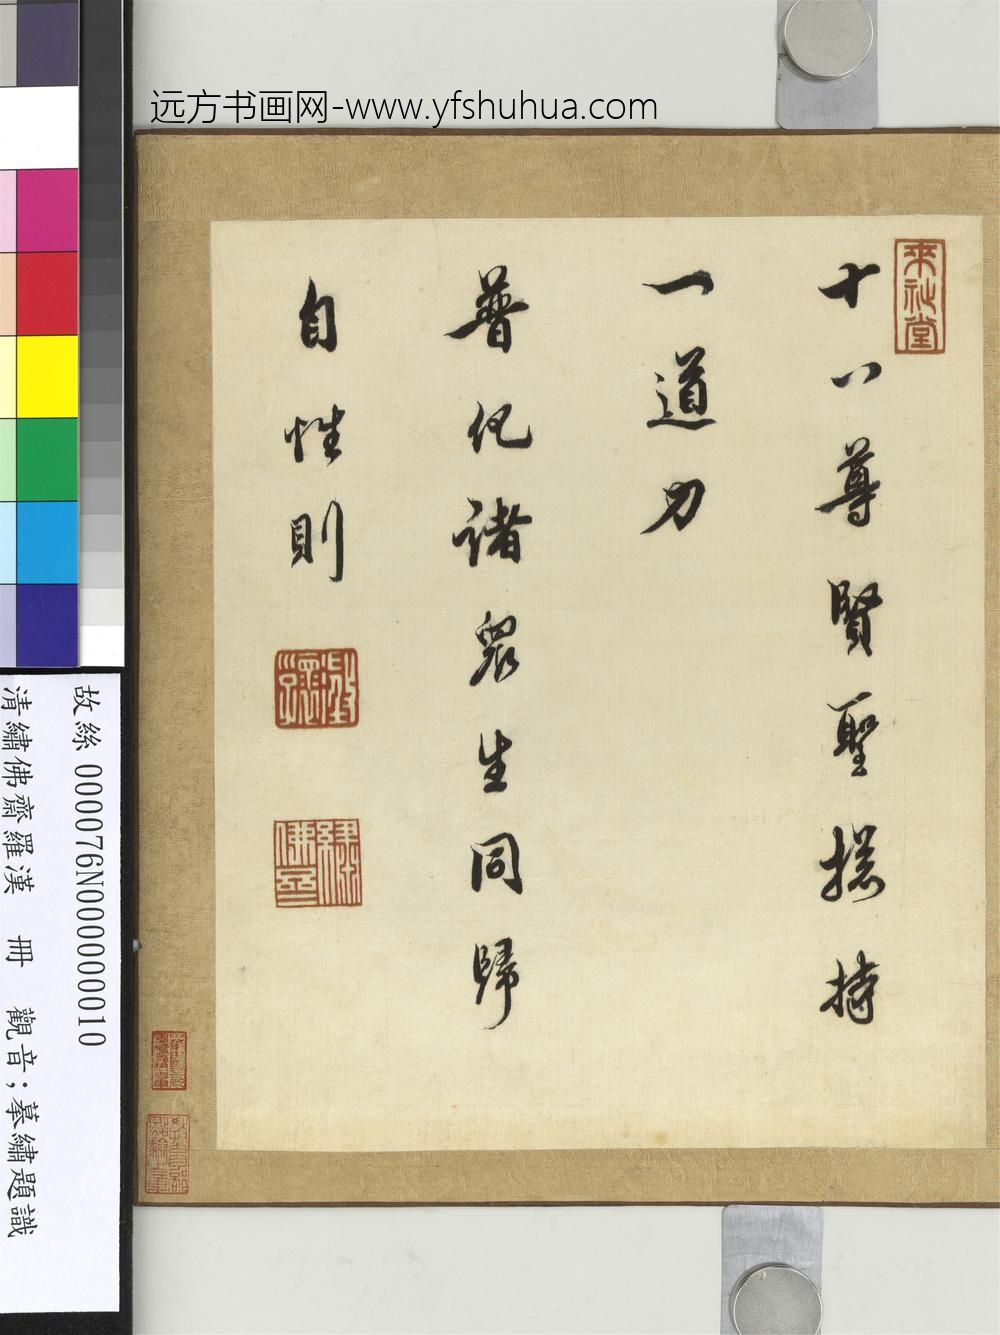 远方书画网-www.yfshuhua.com
來祉堂
十八尊賢聖捴持
一道力
普化諸眾生同歸
自性則
繡佛
故絲 000076N000000010
清繡佛齋羅漢 冊 觀音；摹繡題識